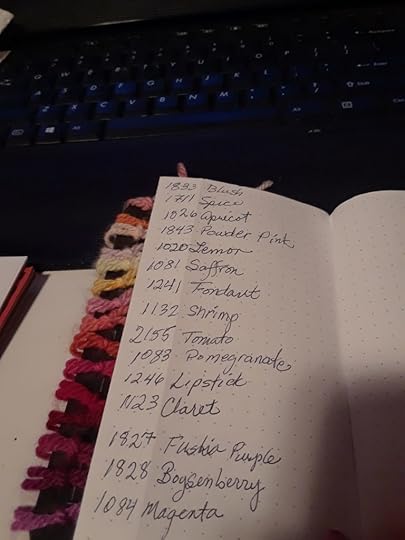 1833 Blush
1711 Spice
1026 Apricot
1843 Powder Pink
1020 Lemon
1081 Saffron
1241 Fondant
1132 Shrimp
2155 Tomato
1083 Pomegranate
1246 Lipstick
1123 Claret
1827 Fushia Purple
1828 Boysenberry
1084 Magenta